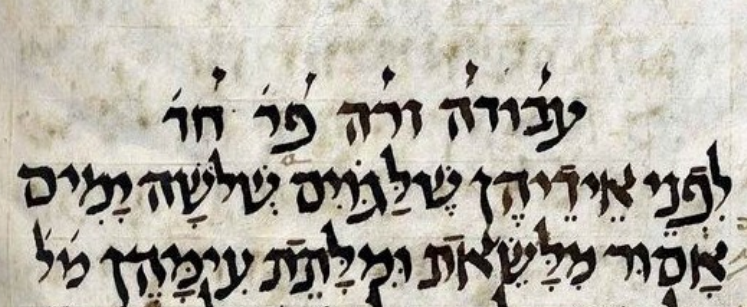 עבודה ורה פר חר
לִפְנֵי אֵידֵיהֶן שֶׁלַּגּוֹיִם שְׁלשָׁה יָמִים
אָסוּר מִלָּשֵׂאת וּמִלָּתֵת עִימָּהֶן מִל